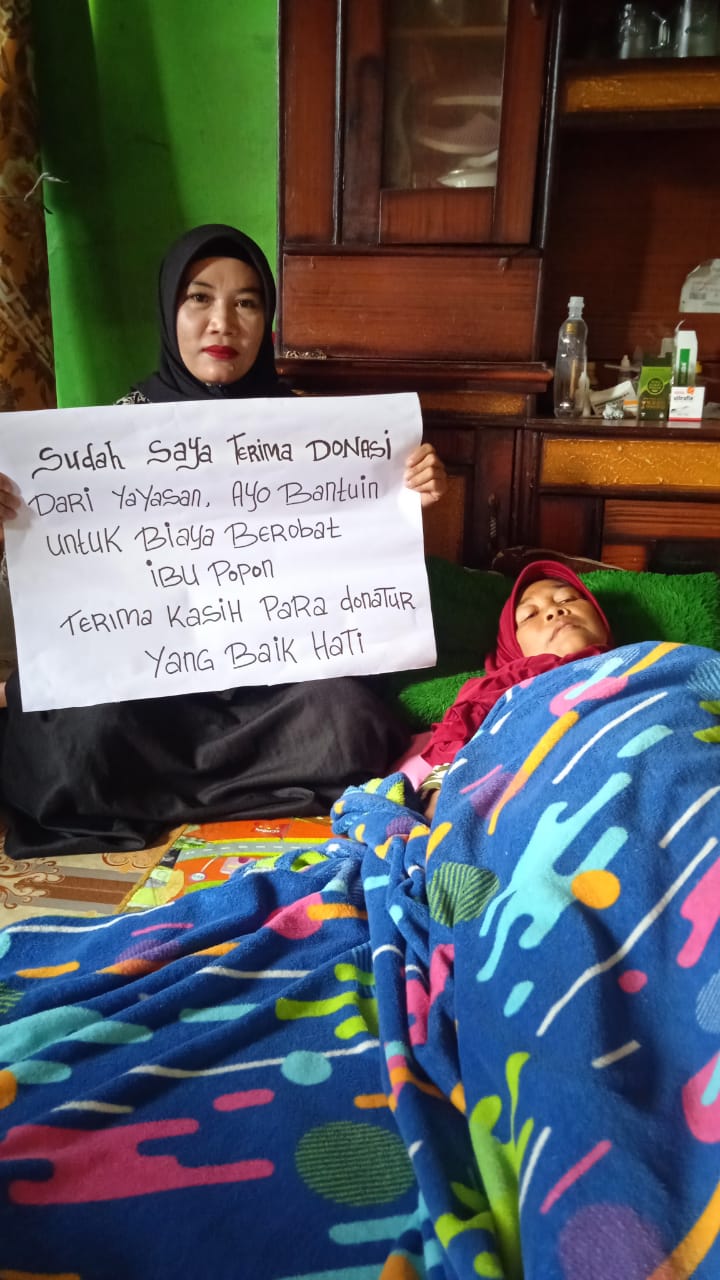 Sudah Saya Terima Donasi
Dari Yayasan, Ayo Bantuin
untuk Biaya Berobat
iBu Popon
Terima Kasih Para donatur
Yang Baik Hati